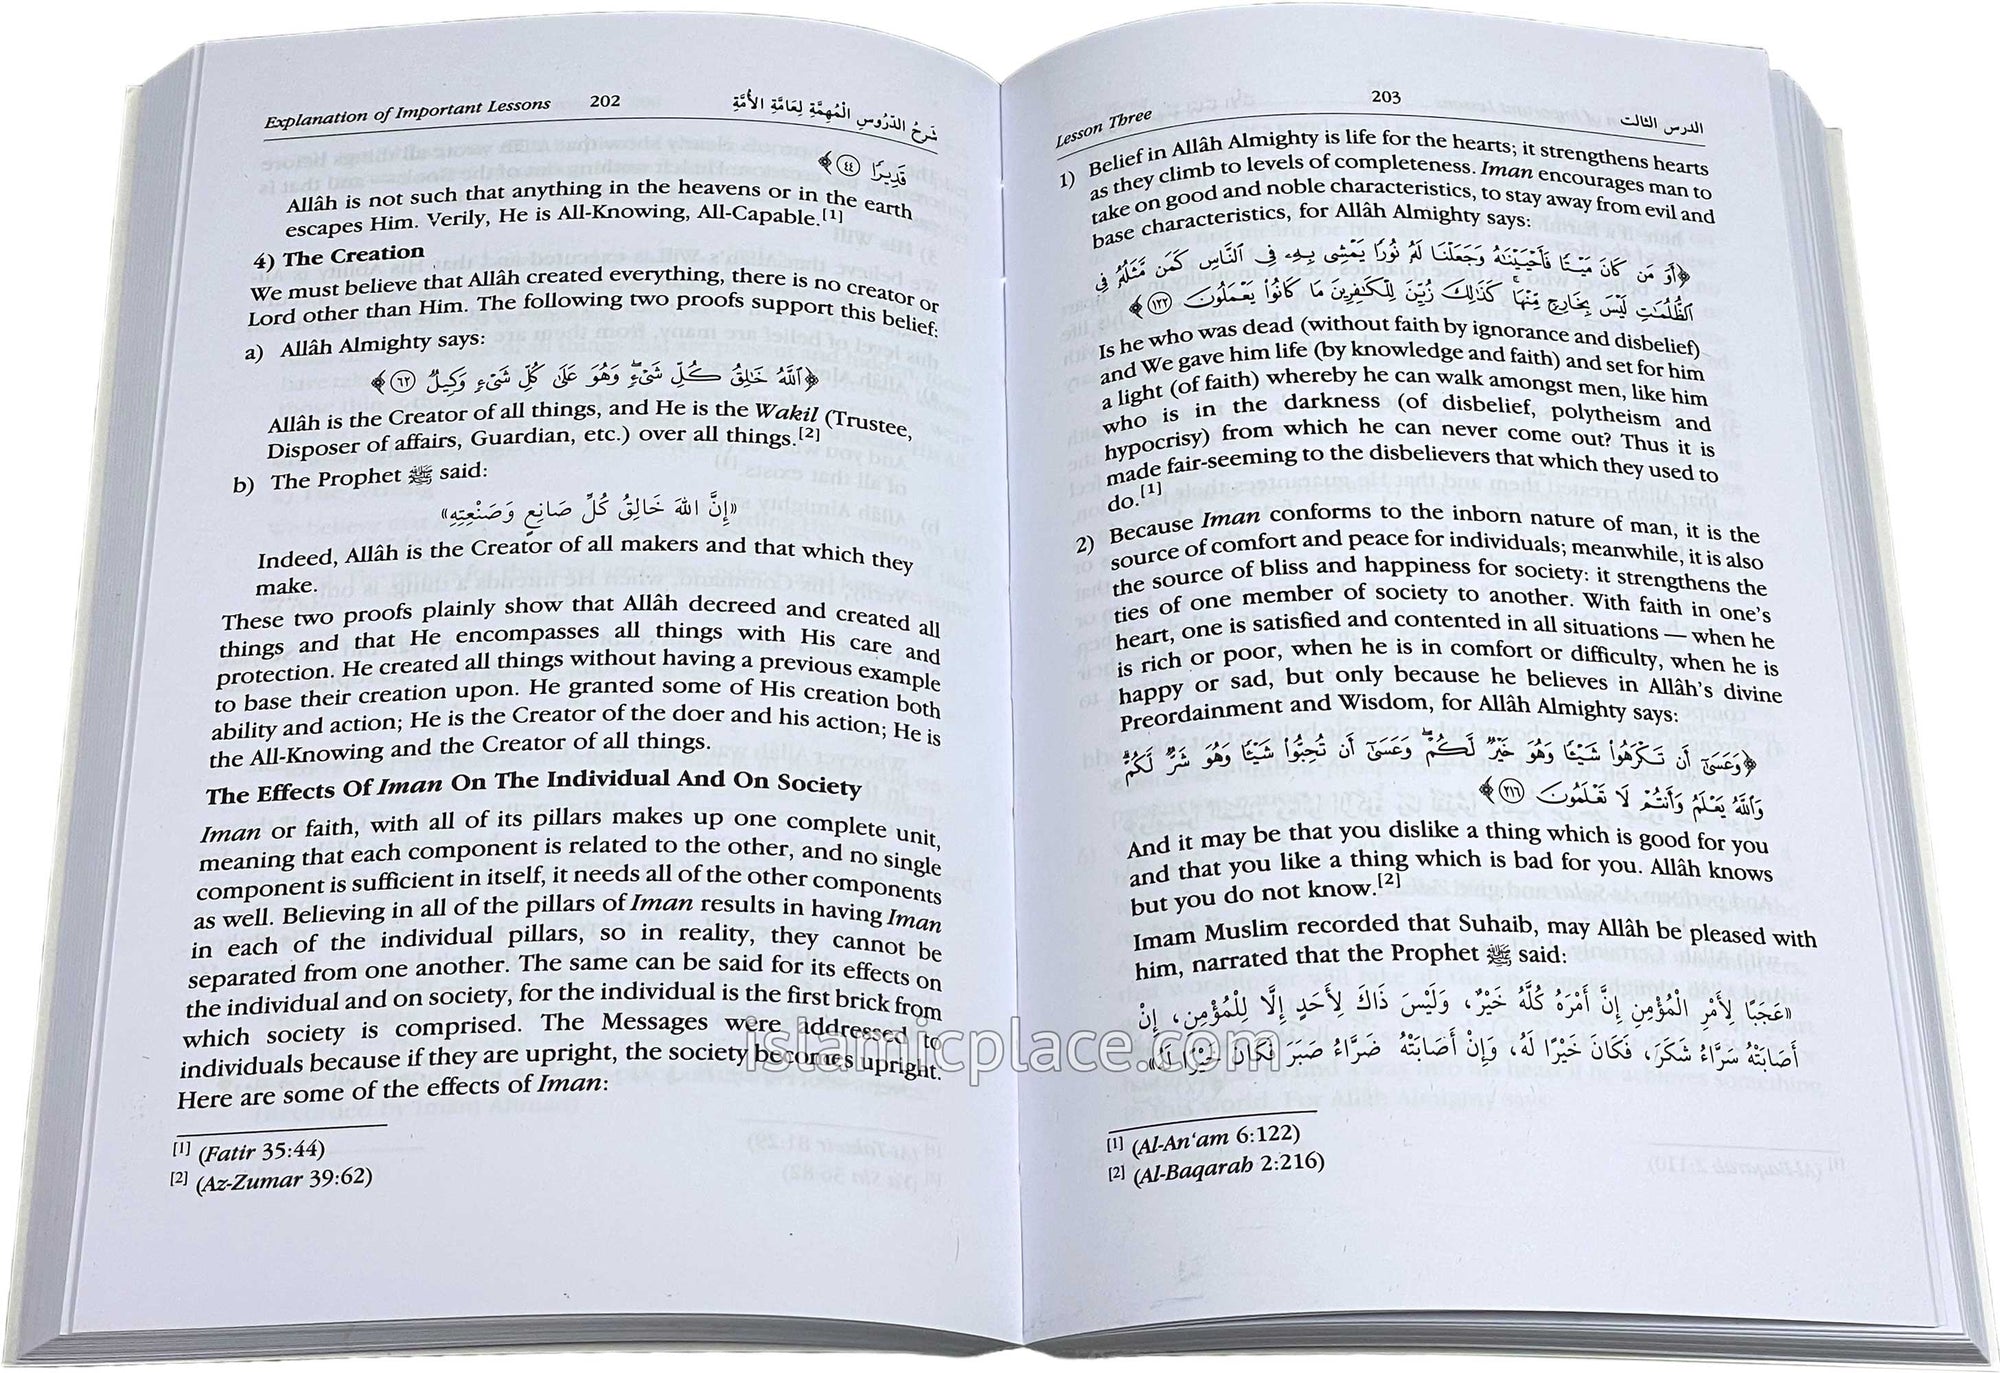 Explanation of Important Lessons 202 شَرحُ الدّرُوسِ الْمُهِمَّةِ لِعَامَّةِ الأُمَّةِ
قَدِيرًا ﴿٤٤﴾
Allâh is not such that anything in the heavens or in the earth
escapes Him. Verily, He is All-Knowing, All-Capable.[1]
4) The Creation
We must believe that Allâh created everything, there is no creator or
Lord other than Him. The following two proofs support this belief:
a) Allâh Almighty says:
﴿ٱللَّهُ خَٰلِقُ كُلِّ شَىْءٍ ۖ وَهُوَ عَلَىٰ كُلِّ شَىْءٍ وَكِيلٌ ٦٢﴾
Allâh is the Creator of all things, and He is the Wakil (Trustee,
Disposer of affairs, Guardian, etc.) over all things.[2]
b) The Prophet ﷺ said:
«إِنَّ اللهَ خَالِقُ كُلِّ صَانِعٍ وَصَنْعِتِهِ»
Indeed, Allâh is the Creator of all makers and that which they
make.
These two proofs plainly show that Allâh decreed and created all
things and that He encompasses all things with His care and
protection. He created all things without having a previous example
to base their creation upon. He granted some of His creation both
ability and action; He is the Creator of the doer and his action; He is
the All-Knowing and the Creator of all things.
The Effects Of Iman On The Individual And On Society
Iman or faith, with all of its pillars makes up one complete unit,
meaning that each component is related to the other, and no single
component is sufficient in itself, it needs all of the other components
as well. Believing in all of the pillars of Iman results in having Iman
in each of the individual pillars, so in reality, they cannot be
separated from one another. The same can be said for its effects on
the individual and on society, for the individual is the first brick from
which society is comprised. The Messages were addressed to
individuals because if they are upright, the society becomes upright.
Here are some of the effects of Iman:
[1] (Fatir 35:44)
[2] (Az-Zumar 39:62)
Lesson Three 203 الدرس الثالث
1) Belief in Allâh Almighty is life for the hearts; it strengthens hearts
as they climb to levels of completeness. Iman encourages man to
take on good and noble characteristics, to stay away from evil and
base characteristics, for Allâh Almighty says:
﴿أَوَ مَن كَانَ مَيْتًا فَأَحْيَيْنَٰهُ وَجَعَلْنَا لَهُۥ نُورًا يَمْشِى بِهِۦ فِى ٱلنَّاسِ كَمَن مَّثَلُهُۥ فِى
ٱلظُّلُمَٰتِ لَيْسَ بِخَارِجٍ مِّنْهَا ۚ كَذَٰلِكَ زُيِّنَ لِلْكَٰفِرِينَ مَا كَانُوا۟ يَعْمَلُونَ ١٢٢﴾
Is he who was dead (without faith by ignorance and disbelief)
and We gave him life (by knowledge and faith) and set for him
a light (of faith) whereby he can walk amongst men, like him
who is in the darkness (of disbelief, polytheism and
hypocrisy) from which he can never come out? Thus it is
made fair-seeming to the disbelievers that which they used to
do.[1]
2) Because Iman conforms to the inborn nature of man, it is the
source of comfort and peace for individuals; meanwhile, it is also
the source of bliss and happiness for society: it strengthens the
ties of one member of society to another. With faith in one's
heart, one is satisfied and contented in all situations — when he
is rich or poor, when he is in comfort or difficulty, when he is
happy or sad, but only because he believes in Allâh's divine
Preordainment and Wisdom, for Allâh Almighty says:
﴿وَعَسَىٰٓ أَن تَكْرَهُوا۟ شَيْـًٔا وَهُوَ خَيْرٌ لَّكُمْ ۖ وَعَسَىٰٓ أَن تُحِبُّوا۟ شَيْـًٔا وَهُوَ شَرٌّ لَّكُمْ ۗ
وَٱللَّهُ يَعْلَمُ وَأَنتُمْ لَا تَعْلَمُونَ ٢١٦﴾
And it may be that you dislike a thing which is good for you
and that you like a thing which is bad for you. Allâh knows
but you do not know.[2]
Imam Muslim recorded that Suhaib, may Allâh be pleased with
him, narrated that the Prophet ﷺ said:
«عَجَبًا لِأَمْرِ الْمُؤْمِنِ إِنَّ أَمْرَهُ كُلَّهُ خَيْرٌ، وَلَيْسَ ذَاكَ لِأَحَدٍ إِلَّا لِلْمُؤْمِنِ، إِنْ
أَصَابَتْهُ سَرَّاءُ شَكَرَ، فَكَانَ خَيْرًا لَهُ، وَإِنْ أَصَابَتْهُ ضَرَّاءُ صَبَرَ فَكَانَ خَيْرًا لَهُ»
[1] (Al-An'am 6:122)
[2] (Al-Baqarah 2:216)
islamicplace.com